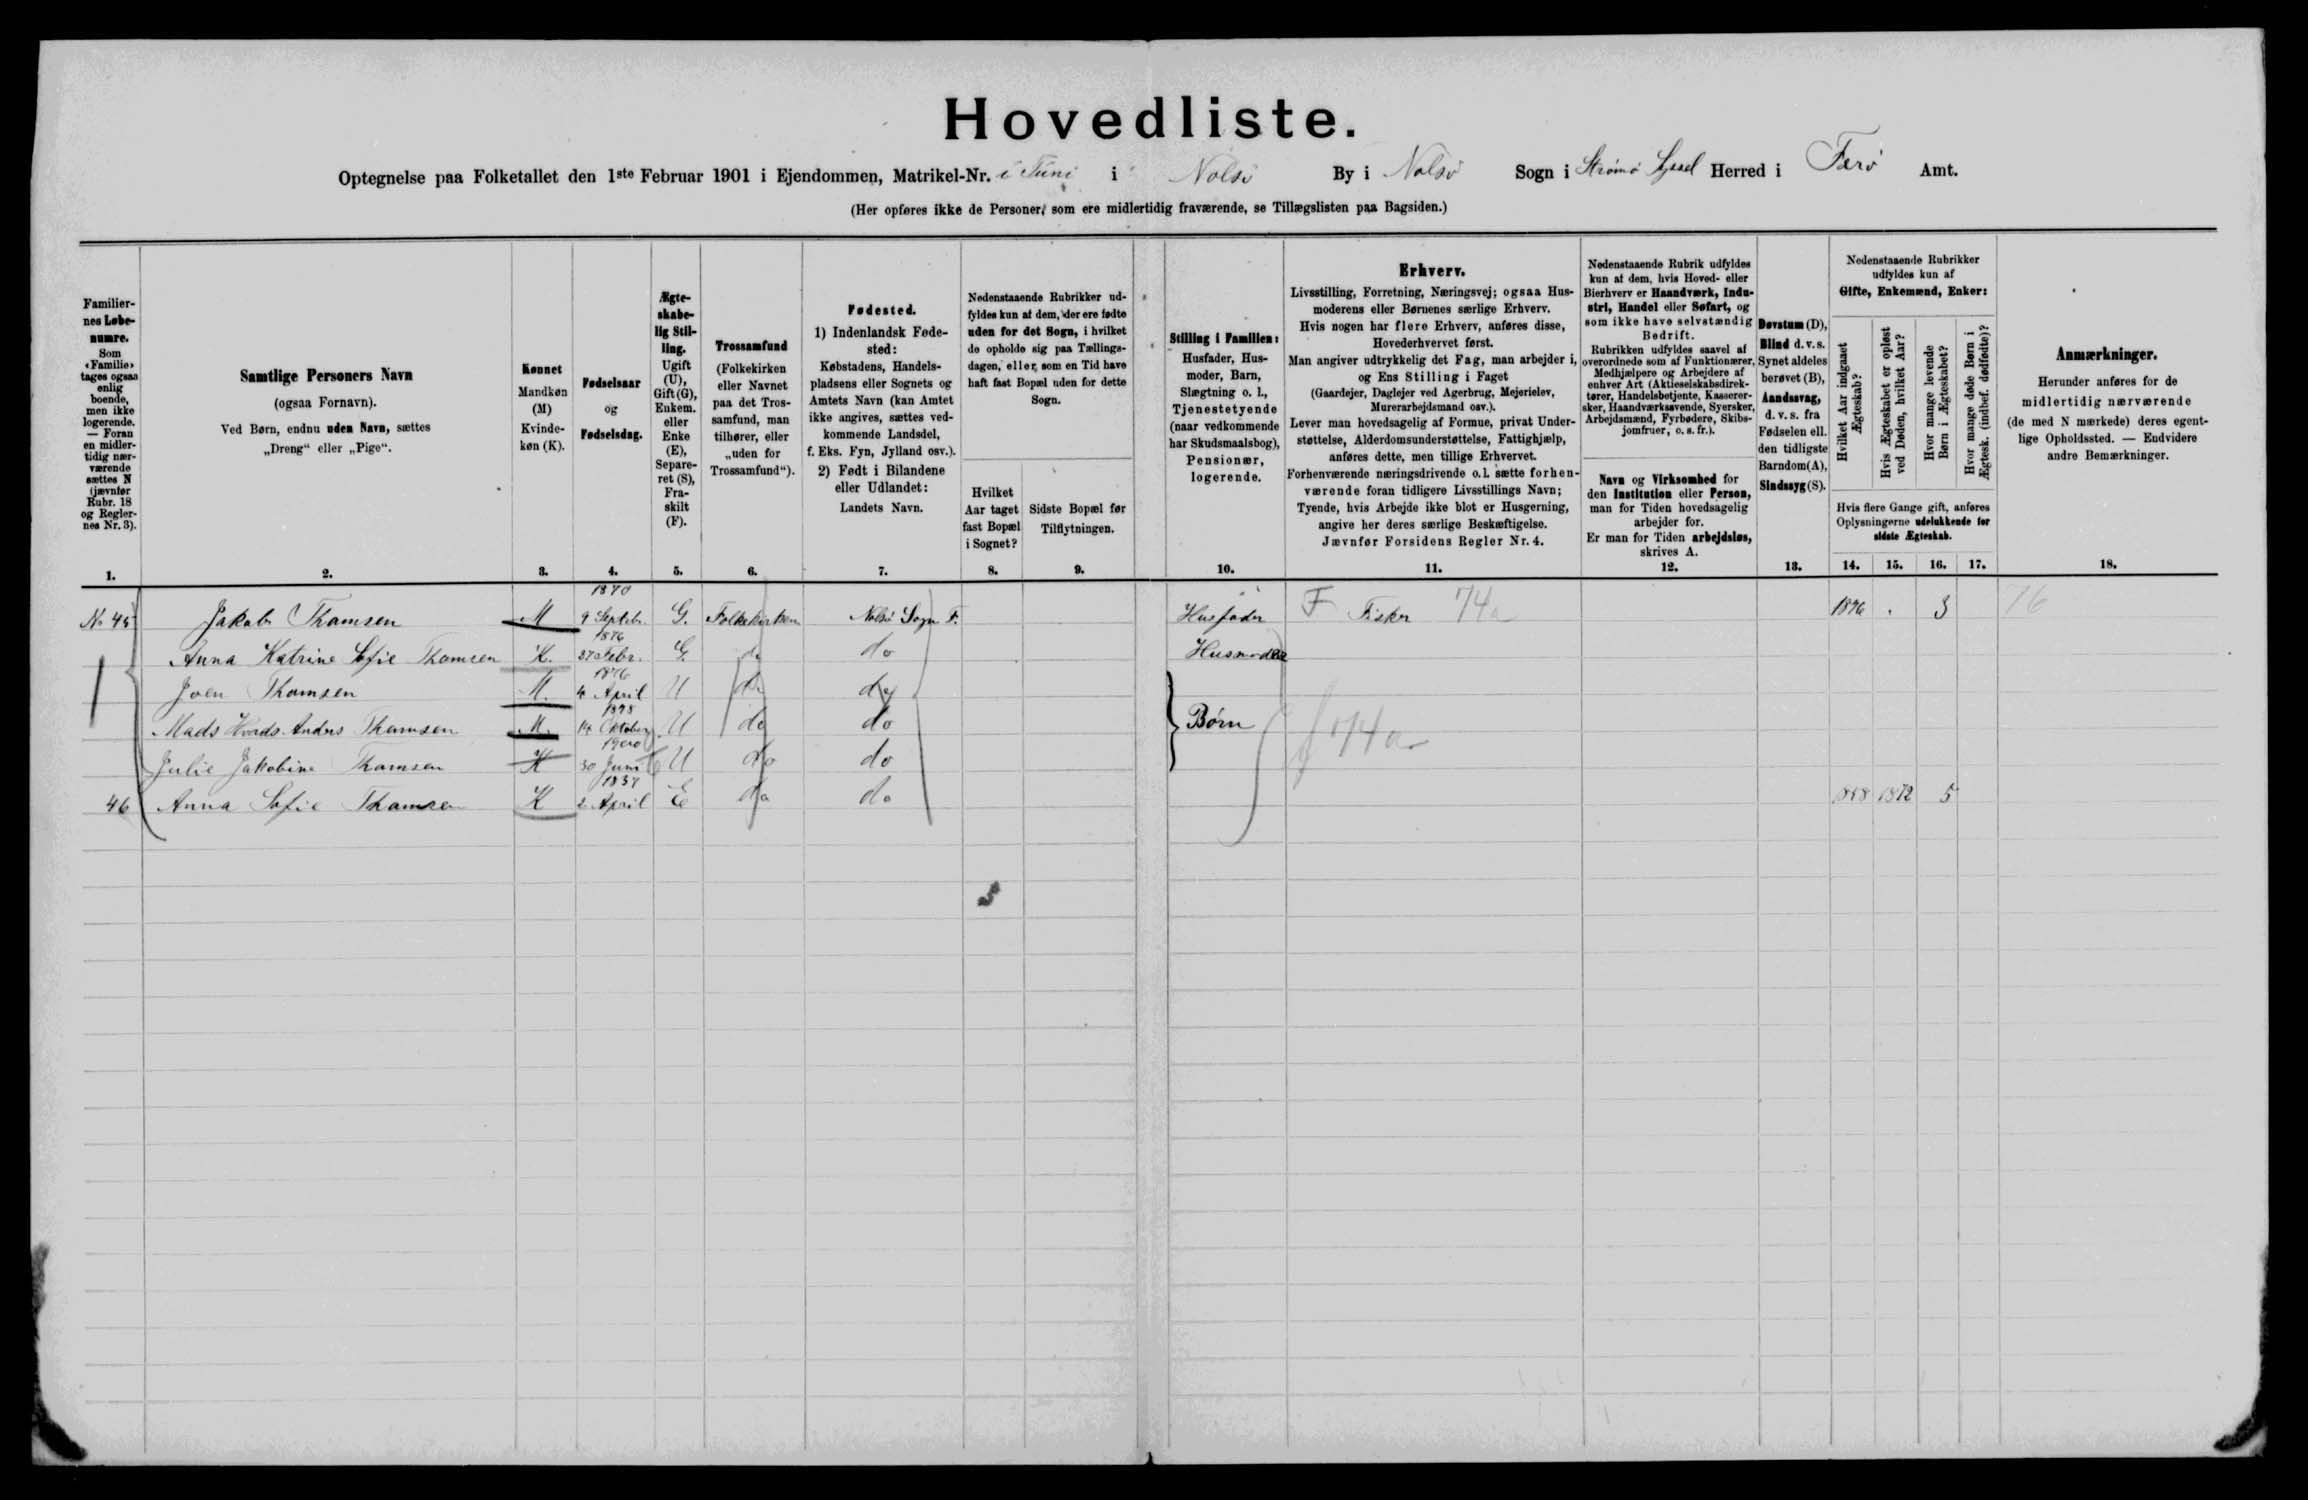 Hovedliste.
Optegnelse paa Folketallet den 1ste Februar 1901 i Ejendommen, Matrikel-Nr. i Tuni i Nolsø By i Nolsø Sogn i Strømø Syssel Herred i Færø Amt.
(Her opføres ikke de Personer, som ere midlertidig fraværende, se Tillægslisten paa Bagsiden.)
Familier-
nes Løbe-
numre.
Som
«Familie»
tages ogsaa
enlig
boende,
men ikke
logerende.
— Foran
en midler-
tidig nær-
værende
sættes N
(jævnfør
Rubr. 18
og Regler-
nes Nr. 3).
1.
Samtlige Personers Navn
(ogsaa Fornavn).
Ved Børn, endnu uden Navn, sættes
„Dreng“ eller „Pige“.
2.
Kønnet
Mandkøn
(M)
Kvinde-
køn (K).
3.
Fødselsaar
og
Fødselsdag.
4.
Ægte-
skabe-
lig Stil-
ling.
Ugift
(U),
Gift (G),
Enkem.
eller
Enke
(E),
Separe-
ret (S),
Fra-
skilt
(F).
5.
Trossamfund
(Folkekirken
eller Navnet
paa det Tros-
samfund, man
tilhører, eller
„uden for
Trossamfund“).
6.
Fødested.
1) Indenlandsk Føde-
sted:
Købstadens, Handels-
pladsens eller Sognets og
Amtets Navn (kan Amtet
ikke angives, sættes ved-
kommende Landsdel,
f. Eks. Fyn, Jylland osv.).
2) Født i Bilandene
eller Udlandet:
Landets Navn.
7.
Nedenstaaende Rubrikker ud-
fyldes kun af dem, der ere fødte
uden for det Sogn, i hvilket
de opholde sig paa Tællings-
dagen, eller, som en Tid have
haft fast Bopæl uden for dette
Sogn.
Hvilket
Aar taget
fast Bopæl
i Sognet?
8.
Sidste Bopæl før
Tilflytningen.
9.
Stilling i Familien:
Husfader, Hus-
moder, Barn,
Slægtning o. l.,
Tjenestetyende
(naar vedkommende
har Skudsmaalsbog),
Pensionær,
logerende.
10.
Erhverv.
Livsstilling, Forretning, Næringsvej; ogsaa Hus-
moderens eller Børnenes særlige Erhverv.
Hvis nogen har flere Erhverv, anføres disse,
Hovederhvervet først.
Man angiver udtrykkelig det Fag, man arbejder i,
og Ens Stilling i Faget
(Gaardejer, Daglejer ved Agerbrug, Mejerielev,
Murerarbejdsmand osv.).
Lever man hovedsagelig af Formue, privat Under-
støttelse, Alderdomsunderstøttelse, Fattighjælp,
anføres dette, men tillige Erhvervet.
Forhenværende næringsdrivende o. l. sætte forhen-
værende foran tidligere Livsstillings Navn;
Tyende, hvis Arbejde ikke blot er Husgerning,
angive her deres særlige Beskæftigelse.
Jævnfør Forsidens Regler Nr. 4.
11.
Nedenstaaende Rubrik udfyldes
kun af dem, hvis Hoved- eller
Bierhverv er Haandværk, Indu-
stri, Handel eller Søfart, og
som ikke have selvstændig
Bedrift.
Rubrikken udfyldes saavel af
overordnede som af Funktionærer,
Medhjælpere og Arbejdere af
enhver Art (Aktieselskabsdirek-
tører, Handelsbetjente, Kasserer-
sker, Haandværkssvende, Syersker,
Arbejdsmænd, Fyrbødere, Skibs-
jomfruer, o. s. fr.).
Navn og Virksomhed for
den Institution eller Person,
man for Tiden hovedsagelig
arbejder for.
Er man for Tiden arbejdsløs,
skrives A.
12.
Døvstum (D),
Blind d. v. s.
Synet aldeles
berøvet (B),
Aandssvag,
d. v. s. fra
Fødselen ell.
den tidligste
Barndom (A),
Sindssyg (S).
13.
Nedenstaaende Rubrikker
udfyldes kun af
Gifte, Enkemænd, Enker:
Hvilket Aar indgaaet
Ægteskab?
Hvis Ægteskabet er opløst
ved Døden, hvilket Aar?
Hvor mange levende
Børn i Ægteskabet?
Hvor mange døde Børn i
Ægtesk. (indbef. dødfødte)?
Hvis flere Gange gift, anføres
Oplysningerne udelukkende for
sidste Ægteskab.
14. 15. 16. 17.
Anmærkninger.
Herunder anføres for de
midlertidig nærværende
(de med N mærkede) deres egent-
lige Opholdssted. — Endvidere
andre Bemærkninger.
18.
No 45 Jakob Thomsen M 1870 9 Septebr. G. Folkekirken Nolsø Sogn F. Husfader F Fisker 74a 1896 3 76
Anna Katrine Sofie Thomsen K. 1876 27 Febr. G do do Husmoder
Joen Thomsen M. 1896 4 April U do do
Mads Anders Thomsen M. 1898 14 Oktober U do do Børn f 74a
Julie Jakobine Thomsen K 1900 30 Juni U do do
46 Anna Sofie Thomsen K 1837 2 April E do do 1858 1872 5